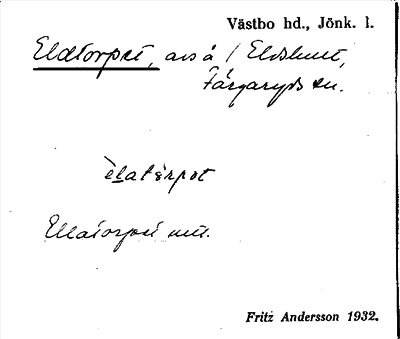 Västbo hd., Jönk. l.
Eldtorpet, avs å 1 Eldshult,
Färgaryds sn.
èlatèrpot
Ellatorpet utt.
Fritz Andersson 1932.